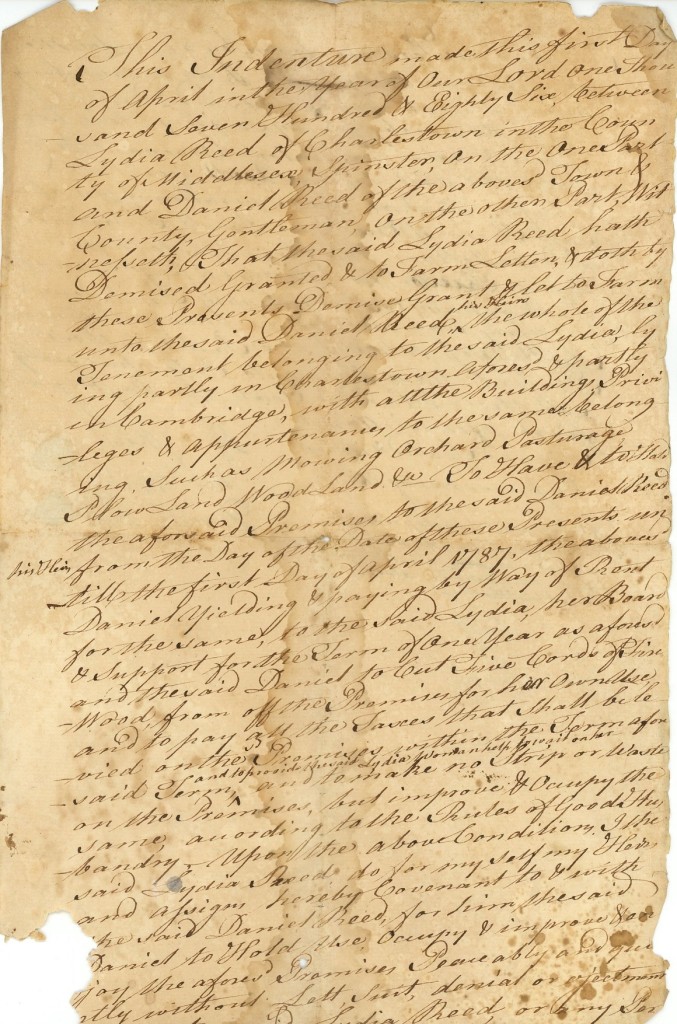 This Indenture made this first Day
of April in the Year of Our Lord One Thou
sand Seven Hundred & Eighty Six, between
Lydia Reed of Charlestown in the Coun
ty of Middlesex, Spinster, On the One Part
and Daniel Reed of the aboves.d Town &
County, Gentleman On the other Part, Wit
-nesseth, That the said Lydia Reed hath
Demised Granted & to Farm Letten, & doth by
these Presents Demise Grant & let to Farm
his Heirs
unto the said Daniel Reed, the whole of the
Tenement belonging to the said Lydia, ly
ing partly in Charlestown afores.d & partly
in Cambridge, with all the Building, Privi
-leges & appurtenances to the same belong
ing. Such as Mowing Orchard Pasturage
Plow Land Wood Land &c To Have & to Hold
the aforsaid Premises to the said Daniel Reed
his Heirs
from the Day of the Date of these Presents un
till the first Day of April 1787. the aboves.d
Daniel Yielding & paying by Way of Rent
for the same, to the said Lydia, her Board
& Support for the Term of One Year as afores.d
and the said Daniel to Cut Five Cords of
Wood, from off the Premises for her Own Use,
and to pay all the Taxes that shall be le
vied on the Premises within the Term afor
and to provide the said Lydia Woman help to wait on her
-said Term, and to make no Strip or Waste
on the Premises, but improve & Occupy the
same, acording to the Rules of Good Hus
bandry - Upon the above Condition, I the
said Lydia Reed do for my self my Heirs
and assigns hereby Covenant to & with
the said Daniel Reed, for him the said
Daniel to Hold Use Occupy & improve &
joy the afores.d Premises Peaceably and qui
etly without Lett, Suit, denial or ejectment
Lydia Reed, or any Per